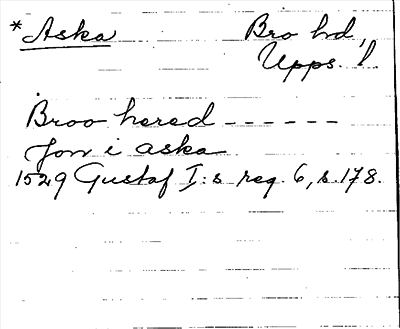 *Aska
Bro hd,
Upps. l.
Broo hered ------
Jon i aska
1529 Gustaf I:s reg. 6, s. 178.